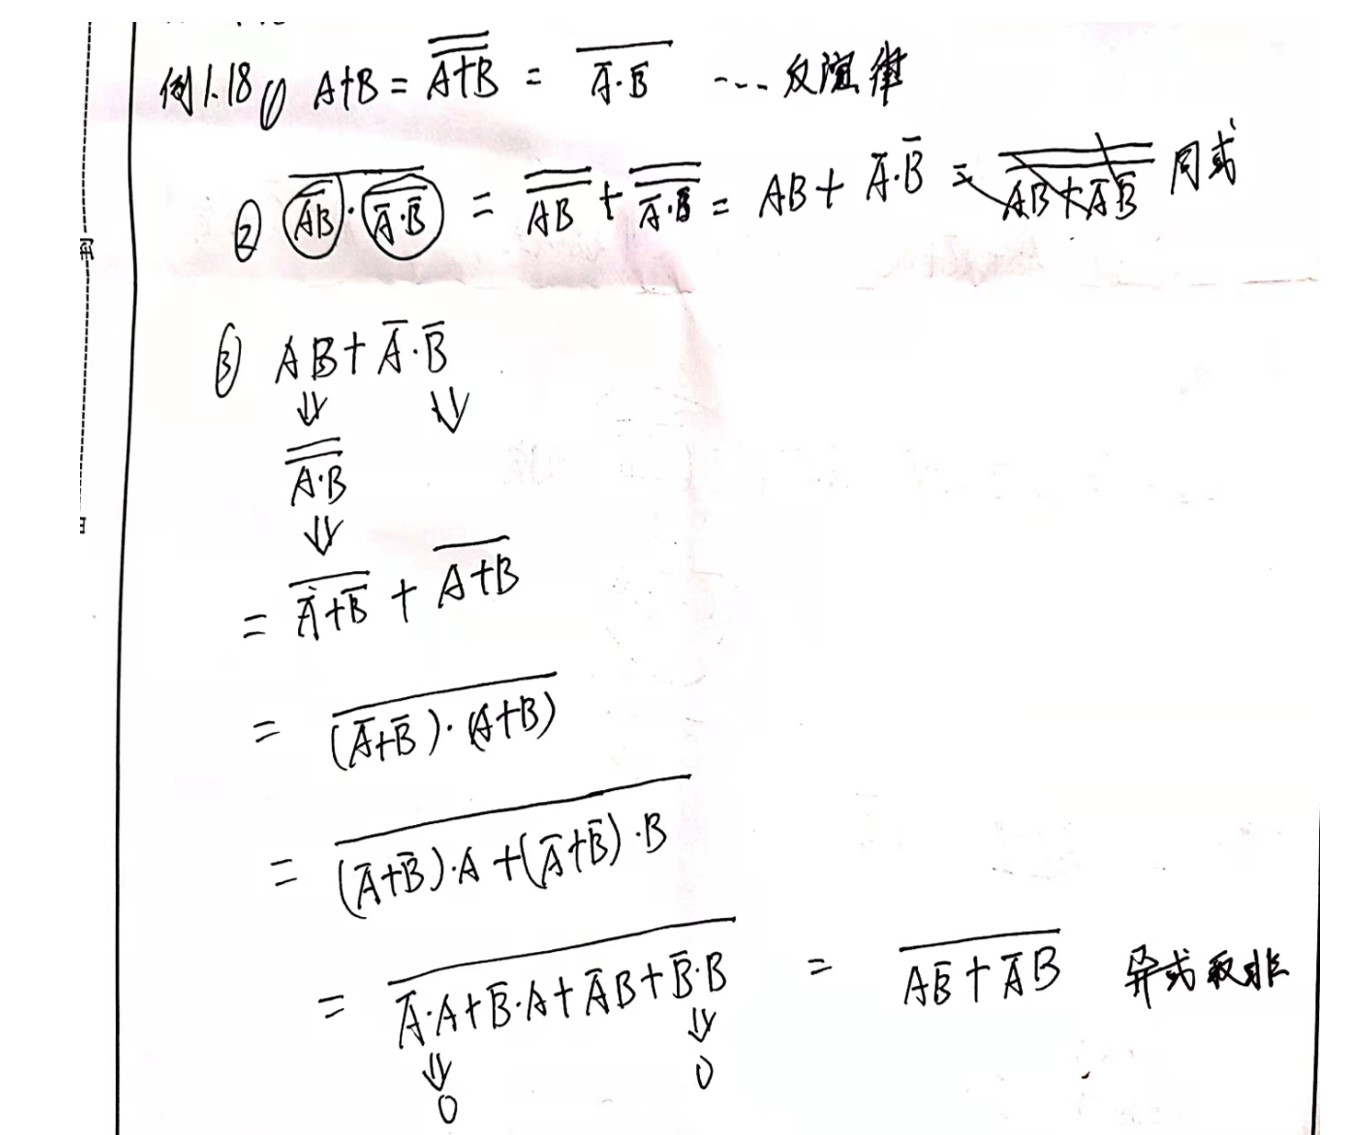 例1.18 ① A+B = \overline{\overline{A+B}} = \overline{\overline{A}·\overline{B}} ---- 反演律
② \overline{\overline{AB}·\overline{\overline{A}·\overline{B}}} = \overline{\overline{AB}} + \overline{\overline{\overline{A}·\overline{B}}} = AB + \overline{A}·\overline{B} = \overline{\overline{AB+\overline{A}\overline{B}}} 同或
③ AB+\overline{A}·\overline{B}
⇓ ⇓
\overline{\overline{A·B}}
⇓
= \overline{\overline{A}+\overline{B}} + \overline{A+B}
= \overline{(\overline{A}+\overline{B})·(A+B)}
= \overline{(\overline{A}+\overline{B})·A+(\overline{A}+\overline{B})·B}
= \overline{\overline{A}·A+\overline{B}·A+\overline{A}B+\overline{B}·B} = \overline{A\overline{B}+\overline{A}B} 异或取非
⇓ ⇓
0 0